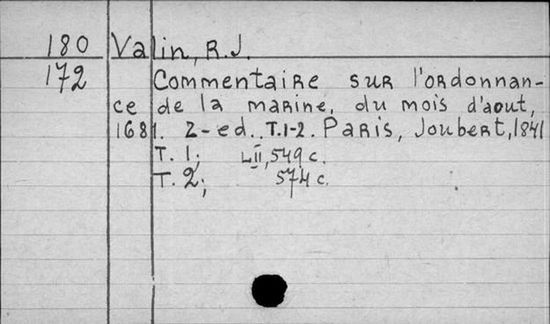 180 Valin, R.J.
172 Commentaire sur l'ordonnan-
ce de la marine, du mois d'aout,
1681. 2-ed. T.1-2. Paris, Joubert, 1841
T. 1; LII, 549 c.
T. 2; 574 c.